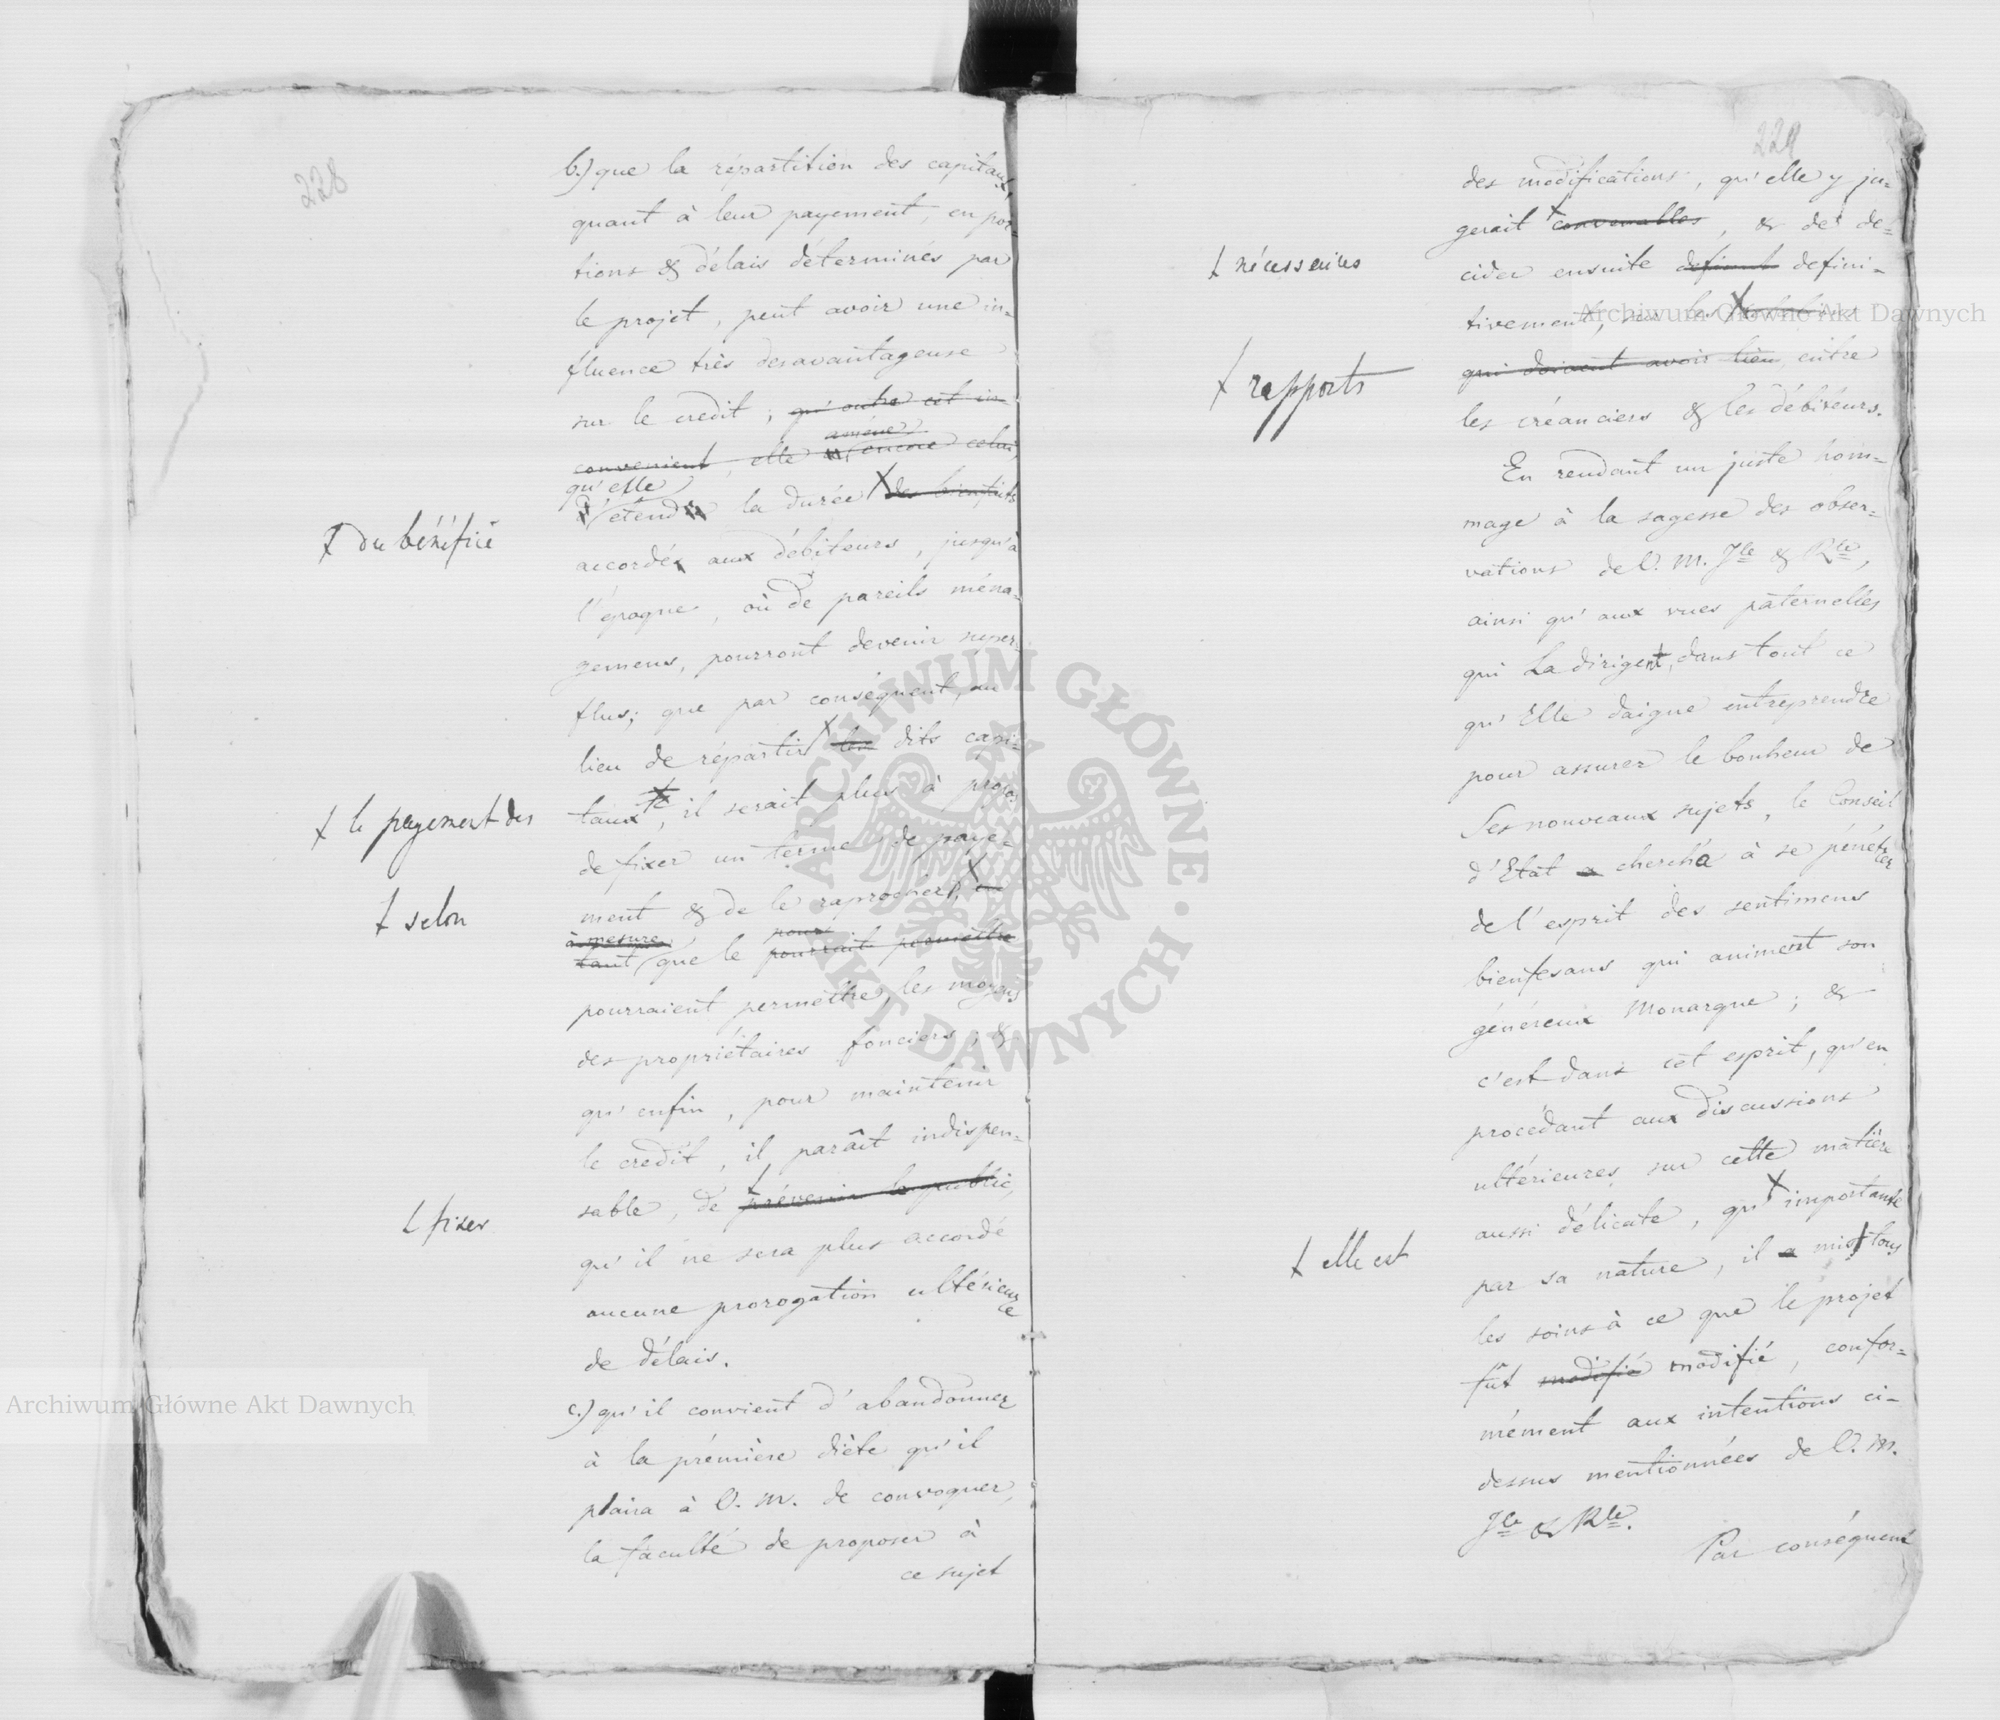 228
b.) que la répartition des capitaux,
quant à leur payement, en por-
tions & délais déterminés par
le projet, peut avoir une in-
fluence très desavantageuse
sur le credit; qu'outre cet in-
amene
convenient, elle encore celui,
qu'elle
etend la durée X des bienfaits
ꝉ du bénéfice
accordés aux débiteurs, jusqu'à
l'époque, où de pareils ména-
gemens, pourront devenir super-
flus; que par conséquent, au
lieu de répartir X les dits capi-
ꝉ le payement des
taux, il serait plus à propos
de fixer un terme de paye-
ment & de le raprocher, X
ꝉ selon
à mesure pour
tant que le pourrait permettre
pourraient permettre, les moyens
des propriétaires fonciers; &
qu'enfin, pour maintenir
le credit, il parâit indispen-
sable, de prévenir le public,
ꝉ fixer
qu'il ne sera plus accordé
aucune prorogation ultérieure
de délais.
c.) qu'il convient d'abandonner
à la prémière diète qu'il
plaira à V. M. de convoquer,
la faculté de proposer à
ce sujet
229
des modifications, qu'elle y ju-
gerait X convenables, & de de-
ꝉ nécessaires
cider ensuite definit defini-
tivement, sur les X
ꝉ rapports
qui doivent avoir lieu, entre
les créanciers & les débiteurs.
En rendant un juste hom-
mage à la sagesse des obser-
vations de V. M. Jle & Rle,
ainsi qu'aux vues paternelles
qui La dirigent, dans tout ce
qu'Elle daigne entreprendre
pour assurer le bonheur de
Ses nouveaux sujets, le Conseil
d'Etat a cherché à se pénétrer
de l'esprit des sentimens
bienfesans qui animent son
généreux Monarque; &
c'est dans cet esprit, qu'en
procédant aux discussions
ultérieures sur cette matière
aussi délicate, qu' X importante
ꝉ elle est
par sa nature, il a mis tous
les soins à ce que le projet
fût modifié modifié, confor-
mément aux intentions ci-
dessus mentionnées de V. M.
Jle & Rle.
Par conséquent
Archiwum Główne Akt Dawnych
Archiwum Główne Akt Dawnych
ARCHIWUM GŁÓWNE · AKT DAWNYCH ·